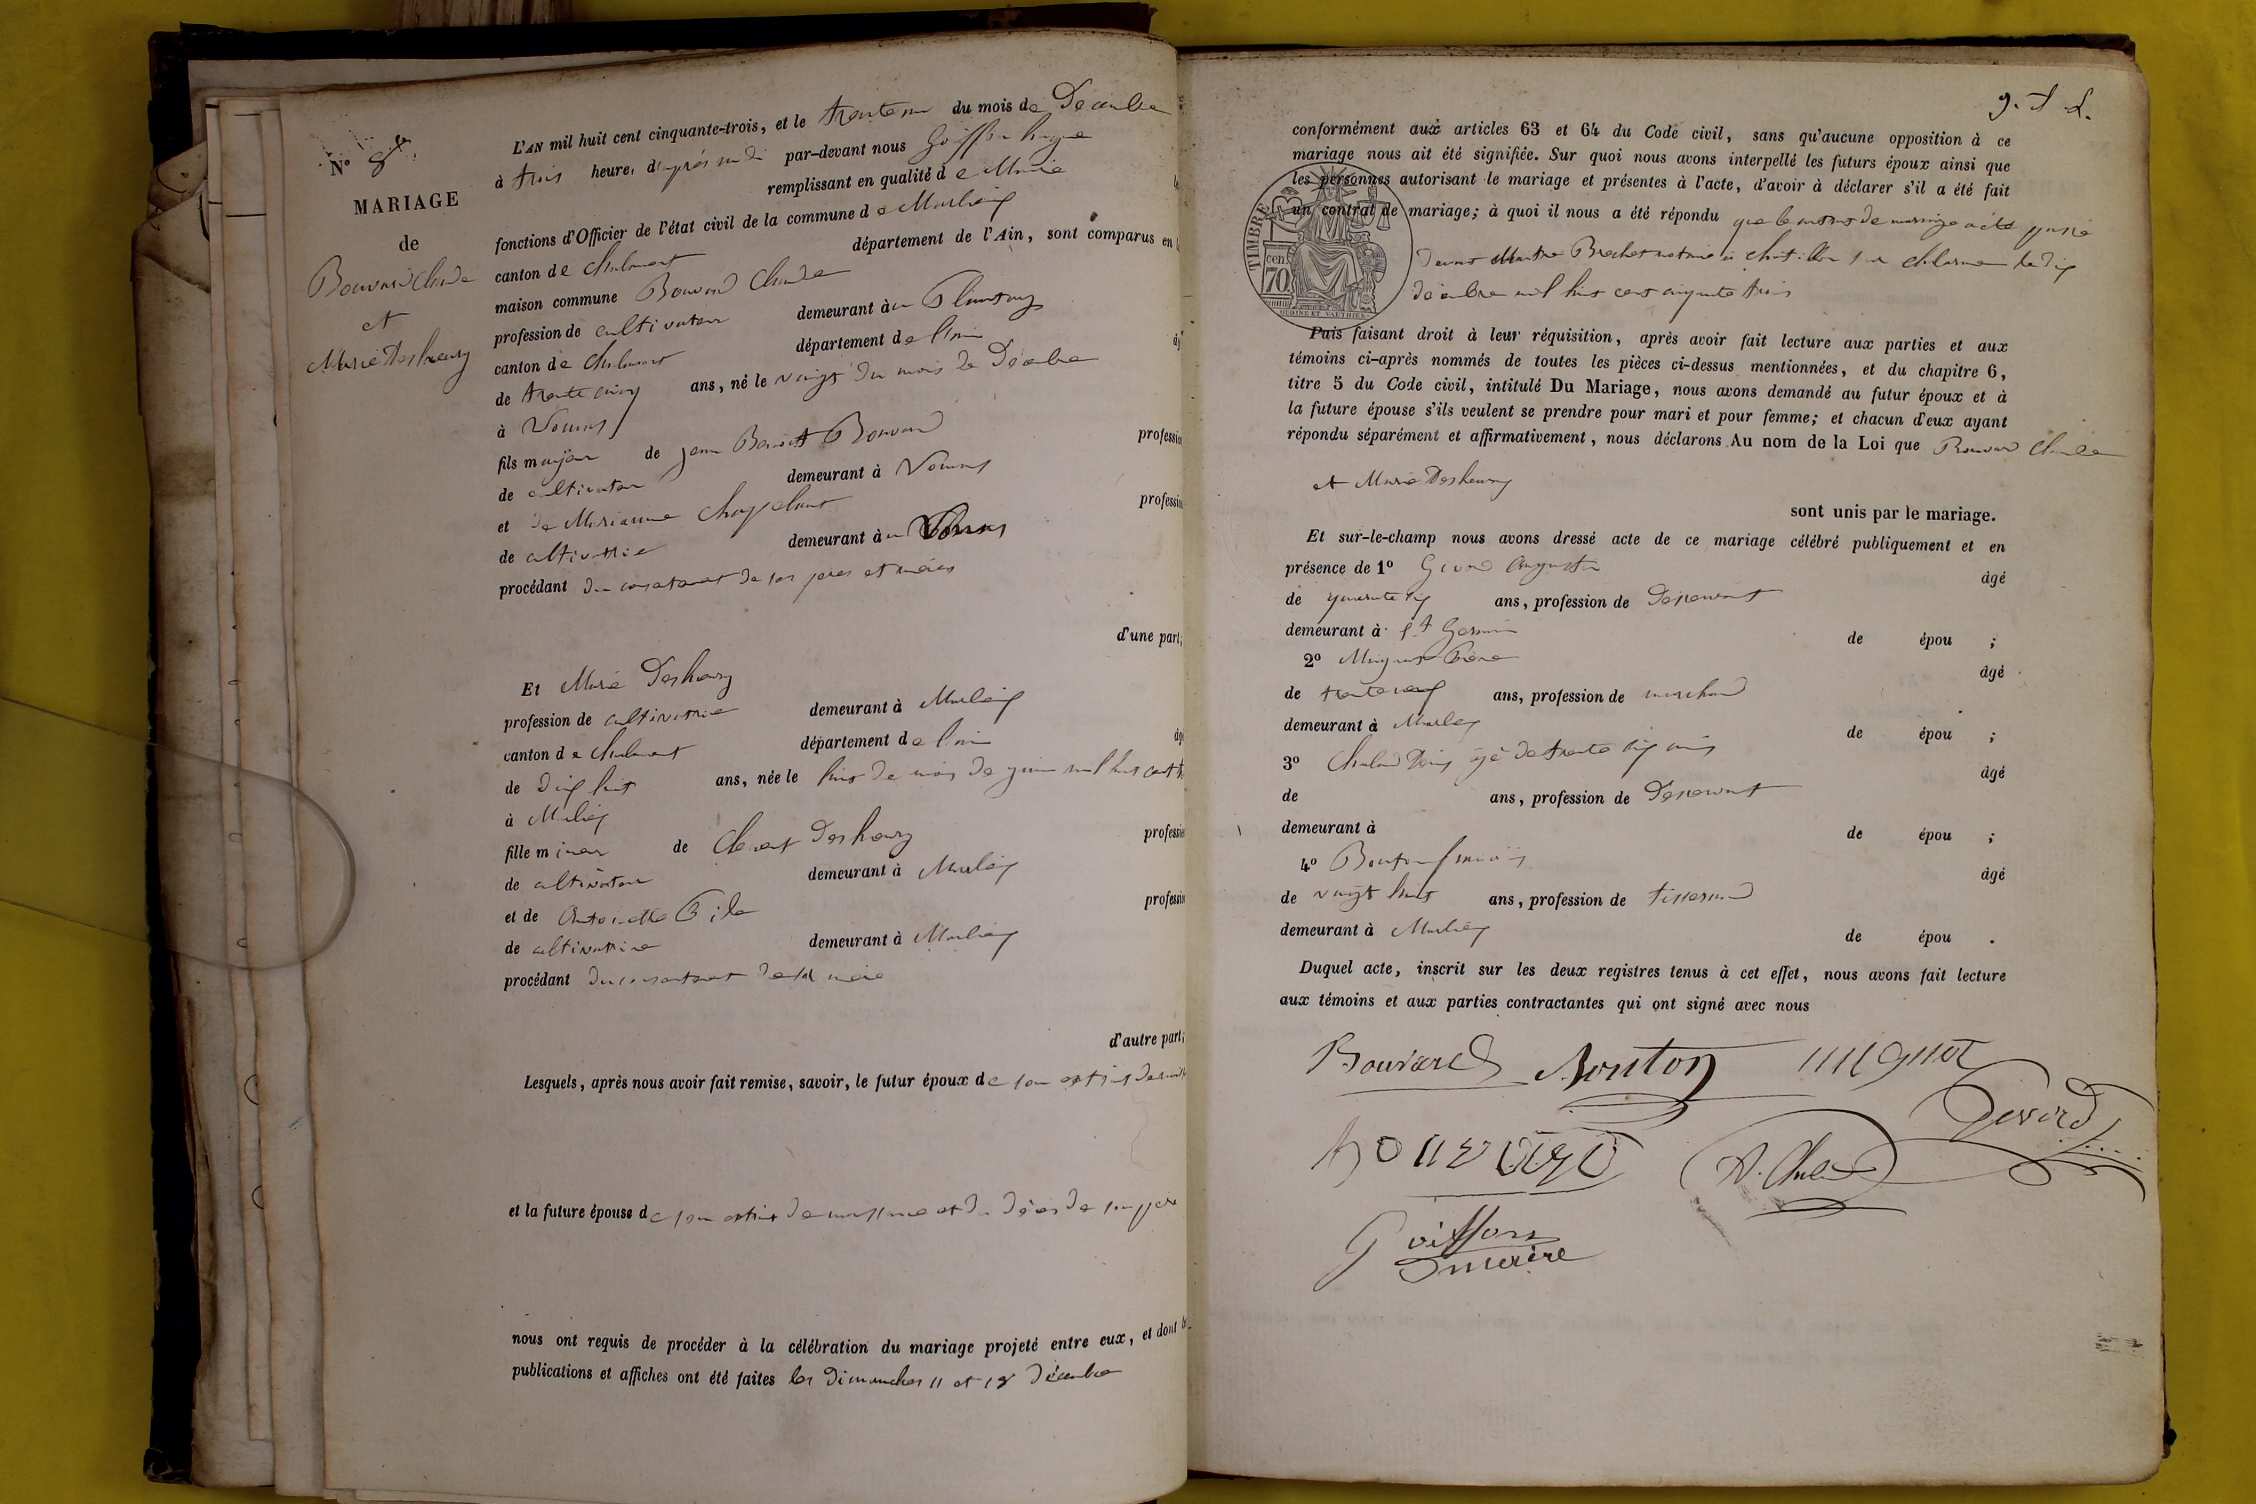 N° 8
MARIAGE
de
Bouvard Claude
et
Marie Desheury
L'AN mil huit cent cinquante-trois, et le trente un du mois de Décembre
à trois heure, d'après midi par-devant nous Goiffon
remplissant en qualité de Maire
fonctions d'Officier de l'état civil de la commune de Marlieux
canton de Chalamont département de l'Ain, sont comparus en
maison commune Bouvard Claude
profession de cultivateur demeurant à
canton de Chalamont département de l'ain
de trente cinq ans, né le vingt du mois de Décembre
à Vonnas
fils majeur de jean Benoit Bouvard professio
de cultivateur demeurant à Vonnas
et de Marianne professio
de cultivatrice demeurant à Vonnas
procédant du consentement de ses peres et mères
d'une part;
Et Marie Desheury
profession de cultivatrice demeurant à Marlieux
canton de Chalamont département de l'ain
de dix huit ans, née le huit de mois de juin mil huit cent
à Marlieux
fille mineur de Clement Desheury profession
de cultivateur demeurant à Marlieux
et de Antoinette Pile profession
de cultivatrice demeurant à Marlieux
procédant du consentement de sa mère
d'autre part;
Lesquels, après nous avoir fait remise, savoir, le futur époux de son extrait de
et la future épouse de son extrait de naissance et du décès de son père
nous ont requis de procéder à la célébration du mariage projeté entre eux, et dont
publications et affiches ont été faites les Dimanches 11 et 18 décembre
conformément aux articles 63 et 64 du Code civil, sans qu'aucune opposition à ce
mariage nous ait été signifiée. Sur quoi nous avons interpellé les futurs époux ainsi que
les personnes autorisant le mariage et présentes à l'acte, d'avoir à déclarer s'il a été fait
un contrat de mariage; à quoi il nous a été répondu que le contrat de mariage a été passé
devant Maitre Brechet notaire à Chatillon sur Chalaronne le dix
décembre mil huit cent cinquante trois
TIMBRE
cen.
70
OUDINE ET VAUTHIER
Puis faisant droit à leur réquisition, après avoir fait lecture aux parties et aux
témoins ci-après nommés de toutes les pièces ci-dessus mentionnées, et du chapitre 6,
titre 5 du Code civil, intitulé Du Mariage, nous avons demandé au futur époux et à
la future épouse s'ils veulent se prendre pour mari et pour femme; et chacun d'eux ayant
répondu séparément et affirmativement, nous déclarons Au nom de la Loi que Bouvard Claude
et Marie Desheury
sont unis par le mariage.
Et sur-le-champ nous avons dressé acte de ce mariage célébré publiquement et en
présence de 1° Augustin âgé
de ans, profession de
demeurant à St Germain de épou ;
2° Mignot Pierre âgé
de trente neuf ans, profession de marchand
demeurant à Marlieux de épou ;
3° Chaland Denis agé de trente six ans âgé
de ans, profession de
demeurant à de épou ;
4° Bouton âgé
de vingt huit ans, profession de tisserand
demeurant à Marlieux de épou .
Duquel acte, inscrit sur les deux registres tenus à cet effet, nous avons fait lecture
aux témoins et aux parties contractantes qui ont signé avec nous
Bouvard Bouton mignot
Bouvard
Goiffon
maire